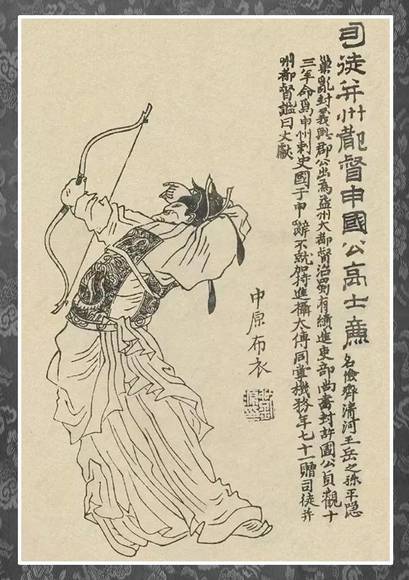 司徒并州都督申國公高士廉 名儉齊清河王岳之孫平隱
巢亂封義興郡公出為益州大都督治蜀有績進吏部尚書封許國公貞觀十
三年命為申州刺史國于申辭不就加特進攝太傅同掌機務年七十一贈司徒并
州都督謚曰文獻
中原布衣